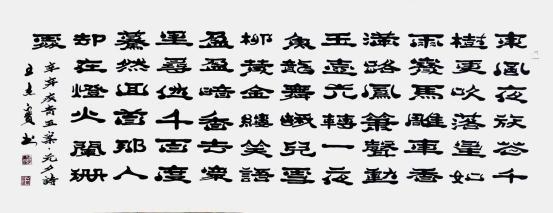 東風夜放花千
樹更吹落星如
雨寶馬雕車香
滿路鳳簫聲動
玉壺光轉一夜
魚龍舞蛾兒雪
柳黃金縷笑語
盈盈暗香去衆
里尋他千百度
驀然回首那人
却在燈火闌珊
處
辛弃疾青玉案·元夕詩
書